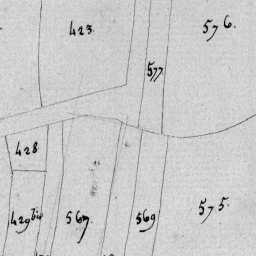 423.
576.
577
428
429 bis
567
569
575.